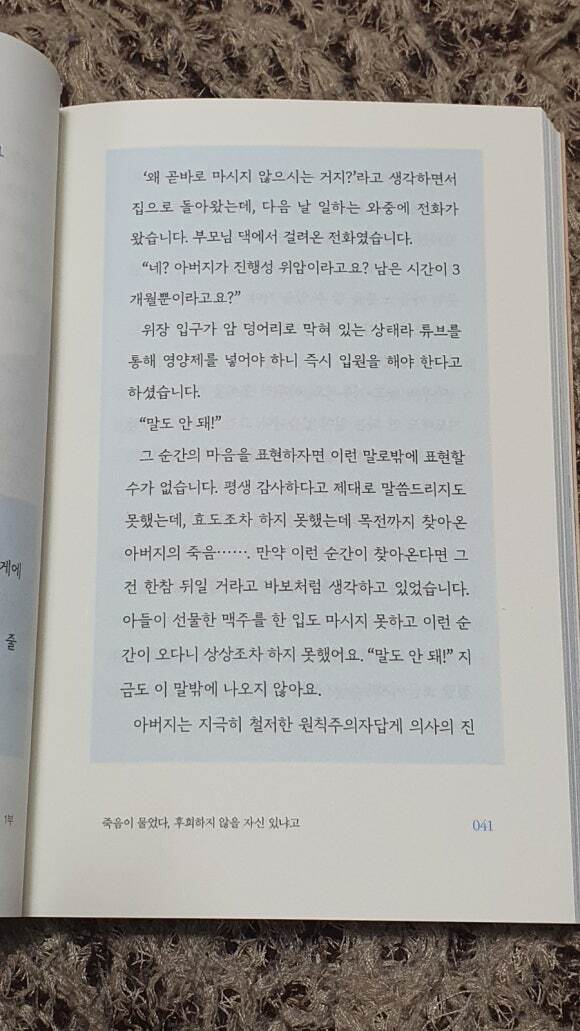 ‘왜 곧바로 마시지 않으시는 거지?’라고 생각하면서
집으로 돌아왔는데, 다음 날 일하는 와중에 전화가
왔습니다. 부모님 댁에서 걸려온 전화였습니다.
“네? 아버지가 진행성 위암이라고요? 남은 시간이 3
개월뿐이라고요?”
위장 입구가 암 덩어리로 막혀 있는 상태라 튜브를
통해 영양제를 넣어야 하니 즉시 입원을 해야 한다고
하셨습니다.
“말도 안 돼!”
그 순간의 마음을 표현하자면 이런 말로밖에 표현할
수가 없습니다. 평생 감사하다고 제대로 말씀드리지도
못했는데, 효도조차 하지 못했는데 목전까지 찾아온
아버지의 죽음……. 만약 이런 순간이 찾아온다면 그
건 한참 뒤일 거라고 바보처럼 생각하고 있었습니다.
아들이 선물한 맥주를 한 입도 마시지 못하고 이런 순
간이 오다니 상상조차 하지 못했어요. “말도 안 돼!” 지
금도 이 말밖에 나오지 않아요.
아버지는 지극히 철저한 원칙주의자답게 의사의 진
죽음이 물었다, 후회하지 않을 자신 있냐고
041
게에
줄
1부